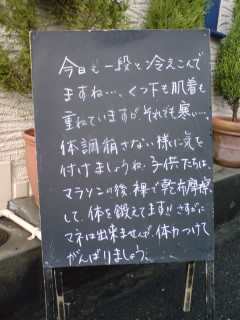 今日も一段と冷えこんで
ますね…、くつ下も肌着も
重ねていますがそれでも寒い…、
体調崩さない様に気を
付けましょうね。子供たちは
マラソンの後裸で乾布摩擦
して、体を鍛えてます!!さすがに
マネは出来ませんが、体力つけて
がんばりましょう、